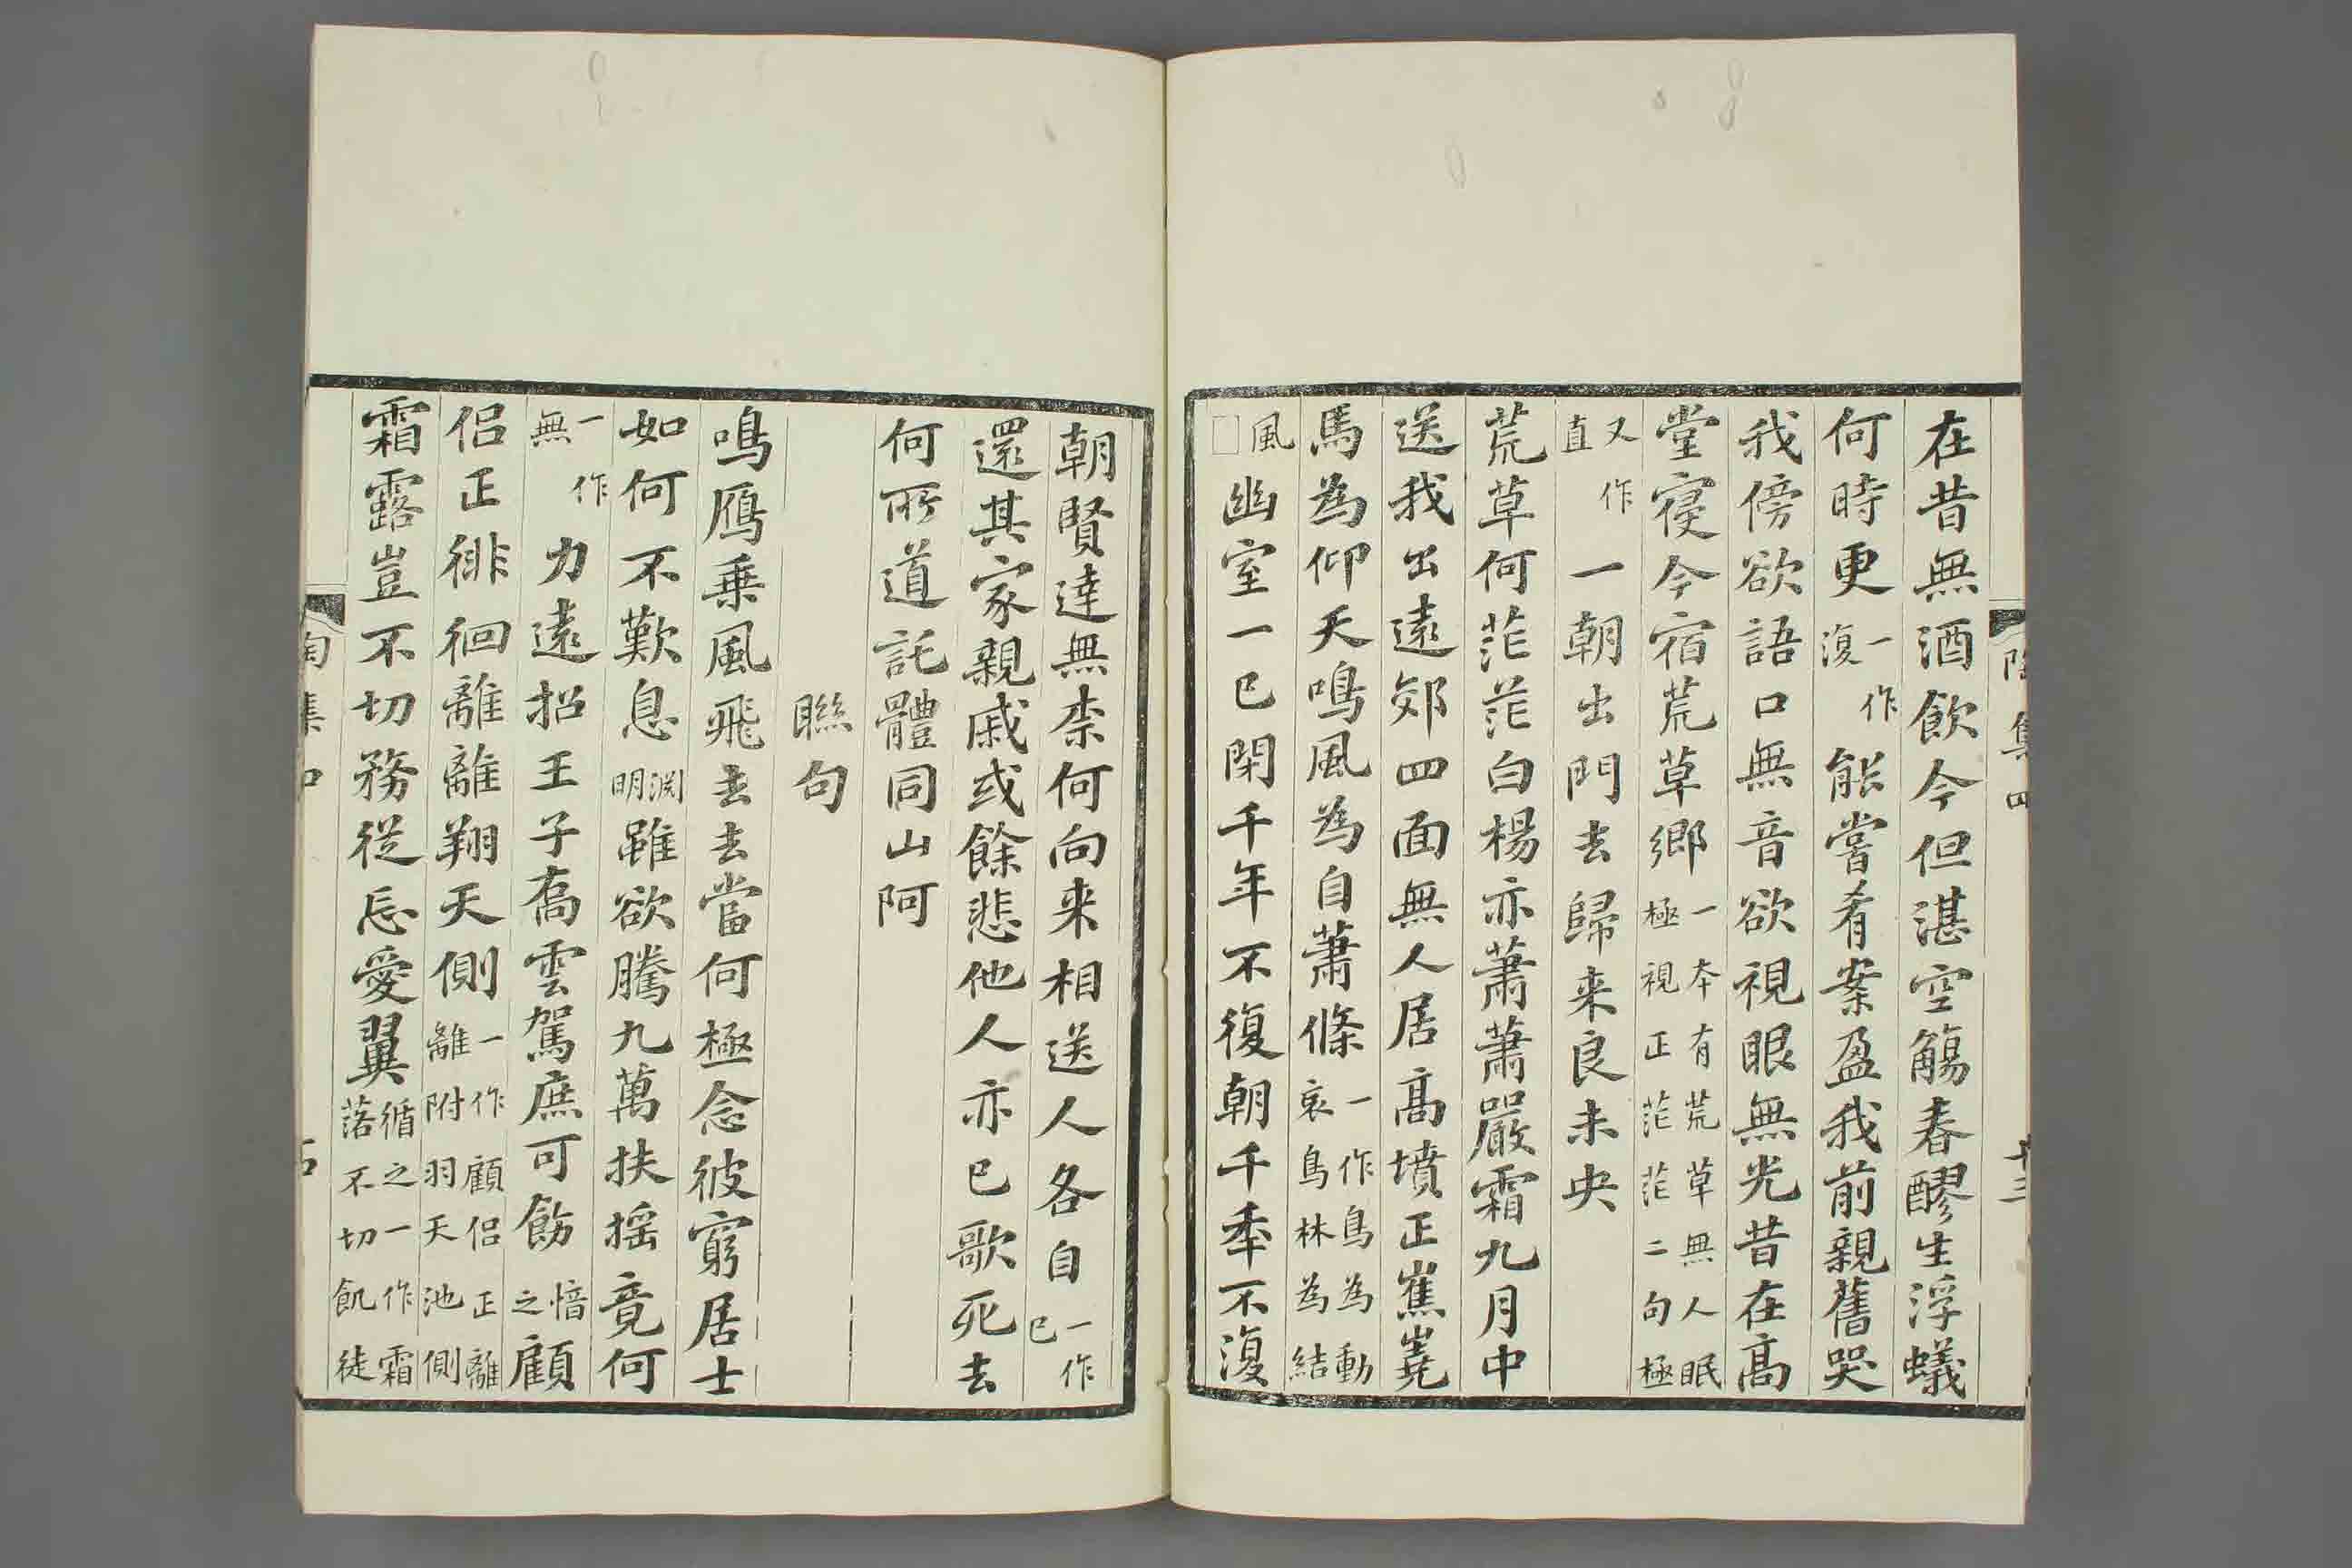 在昔無酒飲今但湛空觴春醪生浮蟻
何時更一作復能嘗肴案盈我前親舊哭
我傍欲語口無音欲視眼無光昔在高
堂寑今宿荒草鄉一本有荒草無人眠極視正茫茫二句極
又作直一朝出門去歸来良未央
荒草何茫茫白楊亦蕭蕭嚴霜九月中
送我出遠郊四面無人居髙墳正嶣嶤
馬為仰天鳴風為自蕭條一作鳥為動哀鳥林為結
風□幽室一已閉千年不復朝千秊不復
朝賢達無柰何向来相送人各自一作已
還其家親戚或餘悲他人亦已歌死去
何所道託體同山阿
聯句
鳴鴈乗風飛去去當何極念彼窮居士
如何不歎息淵明雖欲騰九萬扶揺竟何
一作無力遠招王子喬雲駕庶可飭愔之顧
侣正徘徊離離翔天側一作顧侣正離離附羽天池側
霜露豈不切務從忘愛翼循之一作霜落不切飢徒